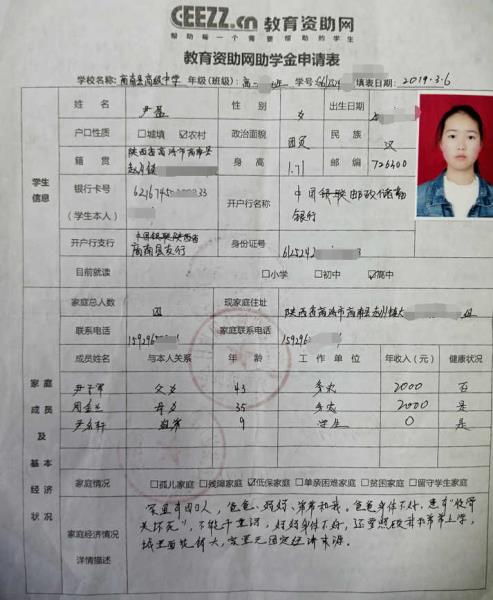 CEEZZ.cn 教育资助网
帮助每一个需要帮助的学生
教育资助网助学金申请表
学校名称: 商南县高级中学 年级(班级): 高一 班 学号: 填表日期: 2019.3.6
姓名 尹 性别 女 出生日期
户口性质 □城镇 ☑农村 政治面貌 团员 民族 汉
籍贯 陕西省商洛市商南县 身高 1.71 邮编 726400
学生信息
银行卡号 (学生本人) 6216745 33 开户行名称 中国银联邮政储蓄银行
开户行支行 商南县支行 身份证号 612524
目前就读 □小学 □初中 ☑高中
家庭总人数 四 现家庭住址 陕西省商洛市商南县 组
联系电话 159296 家庭联系电话 159296
成员姓名 与本人关系 年龄 工作单位 年收入(元) 健康状况
家庭成员及基本经济状况
尹 父女 43 务农 2000 否
周 母女 35 务农 2000 是
尹 9 学生 0 是
家庭情况 □孤儿家庭 □残障家庭 ☑低保家庭 □单亲困难家庭 □贫困家庭 □留守学生家庭
家庭经济情况详情描述
家里有四口人,爸爸、妈妈、弟弟和我。爸爸身体不好,患有“股骨
头坏死”,不能干重活,妈妈身体不好,还要照顾我和弟弟上学,
城里面花销大,家里无固定经济来源。